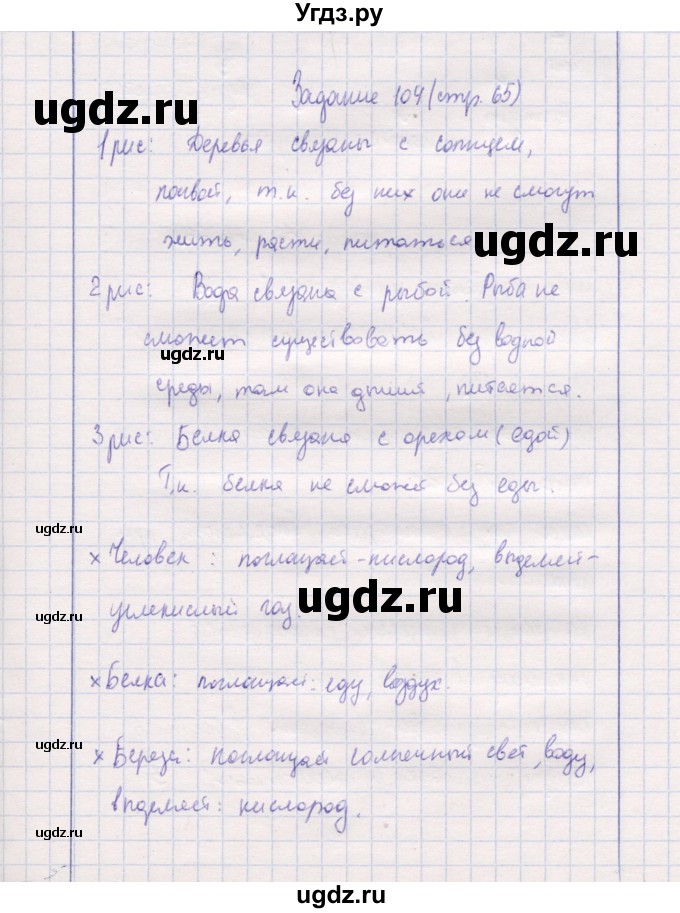 Угдз.ру
Задание 104 (стр. 65)
ugdz.ru
1 рис: Деревья связаны с солнцем,
почвой, т.к. без них они не смогут
жить, расти, питаться
ugdz.ru
2 рис: Вода связана с рыбой. Рыба не
сможет существовать без водной
ugdz.ru
среды, там она дышит, питается.
3 рис: Белка связана с орехом (едой)
Т.к. белка не сможет без еды.
ugdz.ru
× Человек: поглощает - кислород, выделяет -
ugdz.ru
углекислый газ.
ugdz.ru
× Белка: поглощает: еду, воздух.
ugdz.ru
× Береза: поглощает солнечный свет, воду,
выделяет: кислород.
ugdz.ru
ugdz.ru